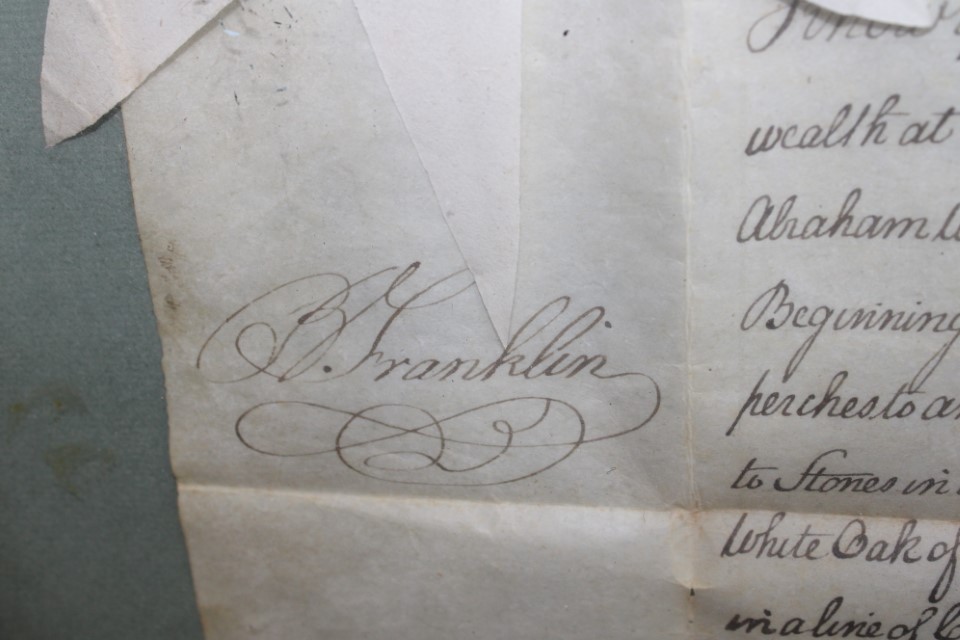 B. Franklin
wealth at
Abraham
Beginning
perches to
to Stones in
White Oak of
in a line of